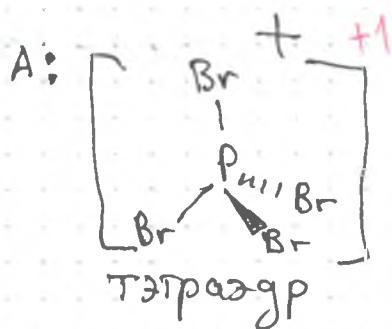 + +1
A:
Br
P
Br Br Br
тэтраэдр